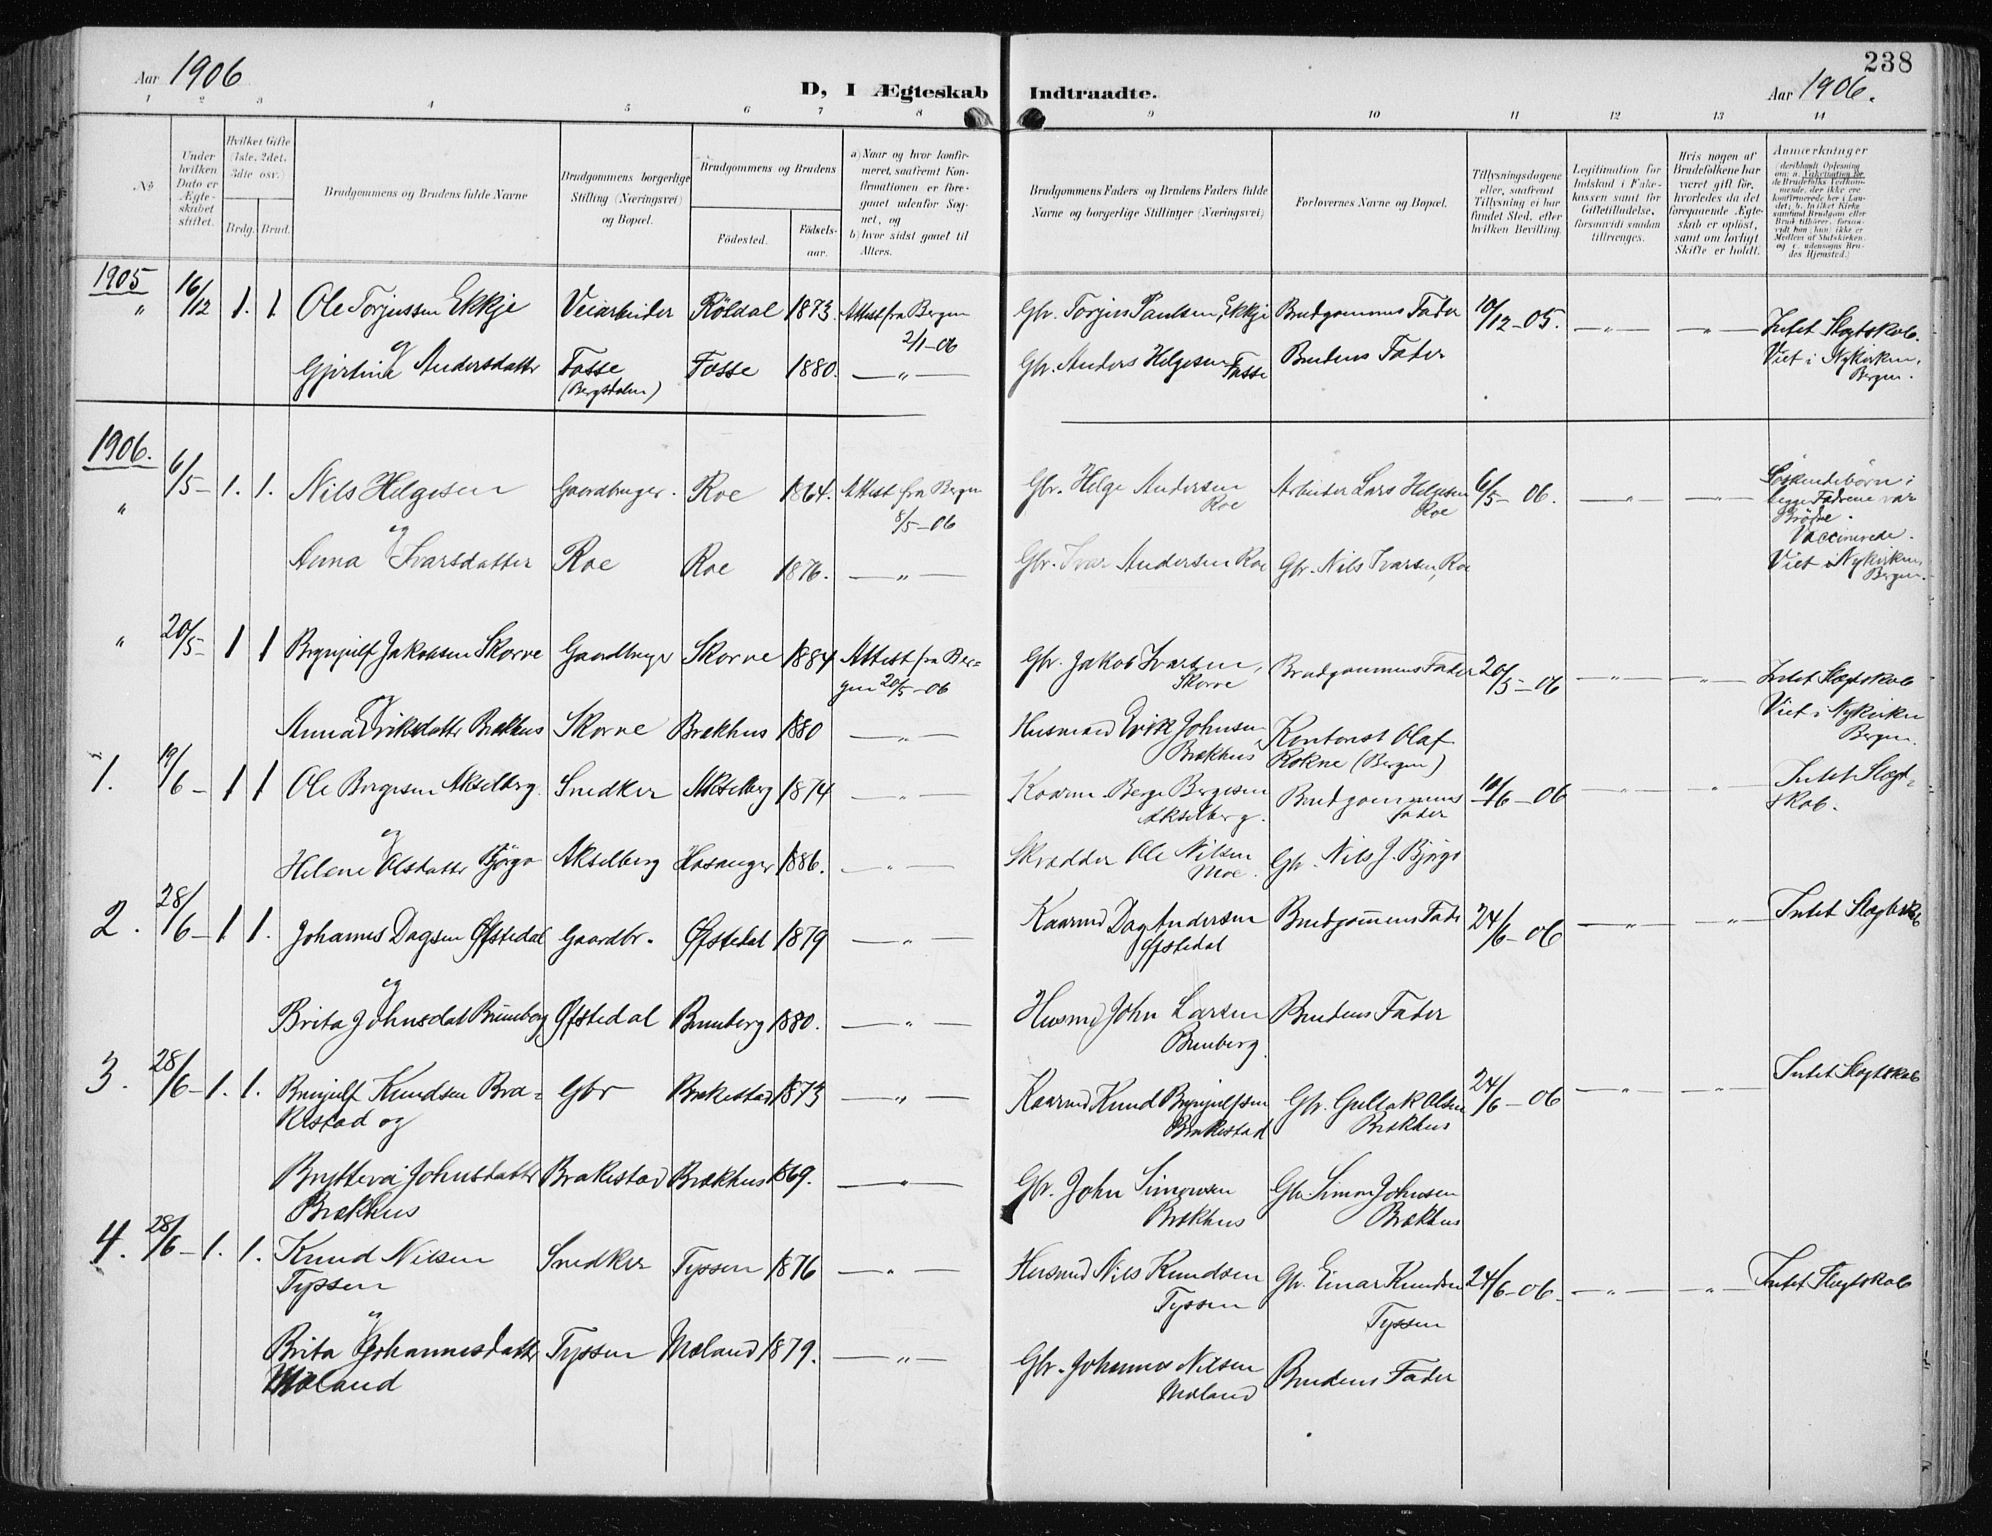 238
Aar 1906
D, I Ægteskab Indtraadte.
Aar 1906.
1 2 3 4 5 6 7 8 9 10 11 12 13 14
№
Under hvilken Dato er Ægteskabet stiftet.
Hvilket Gifte (1ste, 2det, 3dte osv.)
Brdg. Brud.
Brudgommens og Brudens fulde Navne
Brudgommens borgerlige Stilling (Næringsvei) og Bopæl.
Brudgommens og Brudens
Fødested. Fødselsaar.
a) Naar og hvor konfirmeret, saafremt Konfirmationen er foregaaet udenfor Sognet, og
b) hvor sidst gaaet til Alters.
Brudgommens Faders og Brudens Faders fulde Navne og borgerlige Stillinger (Næringsvei)
Forlovernes Navne og Bopæl.
Tillysningsdagene eller, saafremt Tillysning ei har fundet Sted, efter hvilken Bevilling.
Legitimation for Indskud i Enkekassen samt for Giftetilladelse, forsaavidt saadan tiltrænges.
Hvis nogen af Brudefolkene har været gift før, hvorledes da det foregaaende Ægteskab er opløst, samt om lovligt Skifte er holdt.
Anmærkninger
1905
" 16/12 1. 1 Ole Torjussen Ekkje Veiarbeider Röldal 1873. Attest fra Bergen 2/1-06 Gbr. Torjus Paulsen, Ekkje Brudgommens Fader 10/12-05. —"— —"— Intet Slægtskab. Viet i Nykirken, Bergen.
og
Gjertine Andersdatter Fosse (Bergsdalen) Fosse 1880. —"— Gbr. Anders Helgesen Fosse Brudens Fader
1906.
" 6/5- 1. 1. Nils Helgesen Gaardbruger. Roe 1864. Attest fra Bergen 8/5-06 Gbr. Helge Andersen Roe Arbeider Lars Helgesen Roe 6/5-06. —"— —"— Söskendebörn i begge Fædrene var Brödre. Vaccinerede. Viet i Nykirken Bergen.
og
Anna Ivarsdatter Roe Roe 1876. —"— Gbr. Ivar Andersen Roe Gbr. Nils Ivarsen, Roe
" 20/5- 1 1 Brynjulf Jakobsen Skorve Gaardbruger Skorve 1884 Attest fra Bergen 20/5-06 Gbr. Jakob Ivarsen, Skorve Brudgommens Fader 20/5-06 —"— —"— Intet Slægtskab Viet i Nykirken Bergen.
og
Anna Eriksdatter Brækhus Skorve Brækhus 1880 —"— Husmand Erik Johnsen Brækhus Kontorist Olaf Rokne (Bergen)
1. 19/6- 1 1 Ole Bergesen Akselberg. Snedker Akselberg 1874 —"— Kaarm. Berge Bergesen Akselberg. Brudgommens Fader 10/6-06 —"— —"— Intet Slægtskab.
og
Helene Olsdatter Bjørgo Akselberg Hosanger 1886. —"— Skrædder Ole Nilsen Moe. Gbr. Nils J. Bjørgo
2. 28/6- 1 1. Johannes Dagsen Øfstedal Gaardbr. Øfstedal 1879 —"— Kaarmd Dag Andersen Øfstedal Brudgommens Fader 24/6-06 —"— —"— Intet Slægtskab
og
Brita Johnsdat Brunborg Øfstedal Brunborg 1880. —"— Husmd John Larsen Brunborg. Brudens Fader
3. 28/6- 1. 1. Brynjulf Knudsen Brakestad og Gbr Brakestad 1873 —"— Kaarmd Knud Brynjulfsen Brakestad Gbr. Gullak Olsen Brækhus 24/6-06 —"— —"— Intet Slægtskab
Brytteva Johnsdatter Brækhus Brakestad Brækhus 1869. —"— Gbr. John Simonsen Brækhus Gbr. Simon Johnsen Brækhus
4. 28/6- 1. 1. Knud Nilsen Tyssen Snedker Tyssen 1876 —"— Husmd Nils Knudsen Tyssen Gbr. Einar Knudsen Tyssen 24/6-06. —"— —"— Intet Slægtskab
og
Brita Johannesdatter Moland Tyssen Moland 1879. —"— Gbr. Johannes Nilsen Moland Brudens Fader